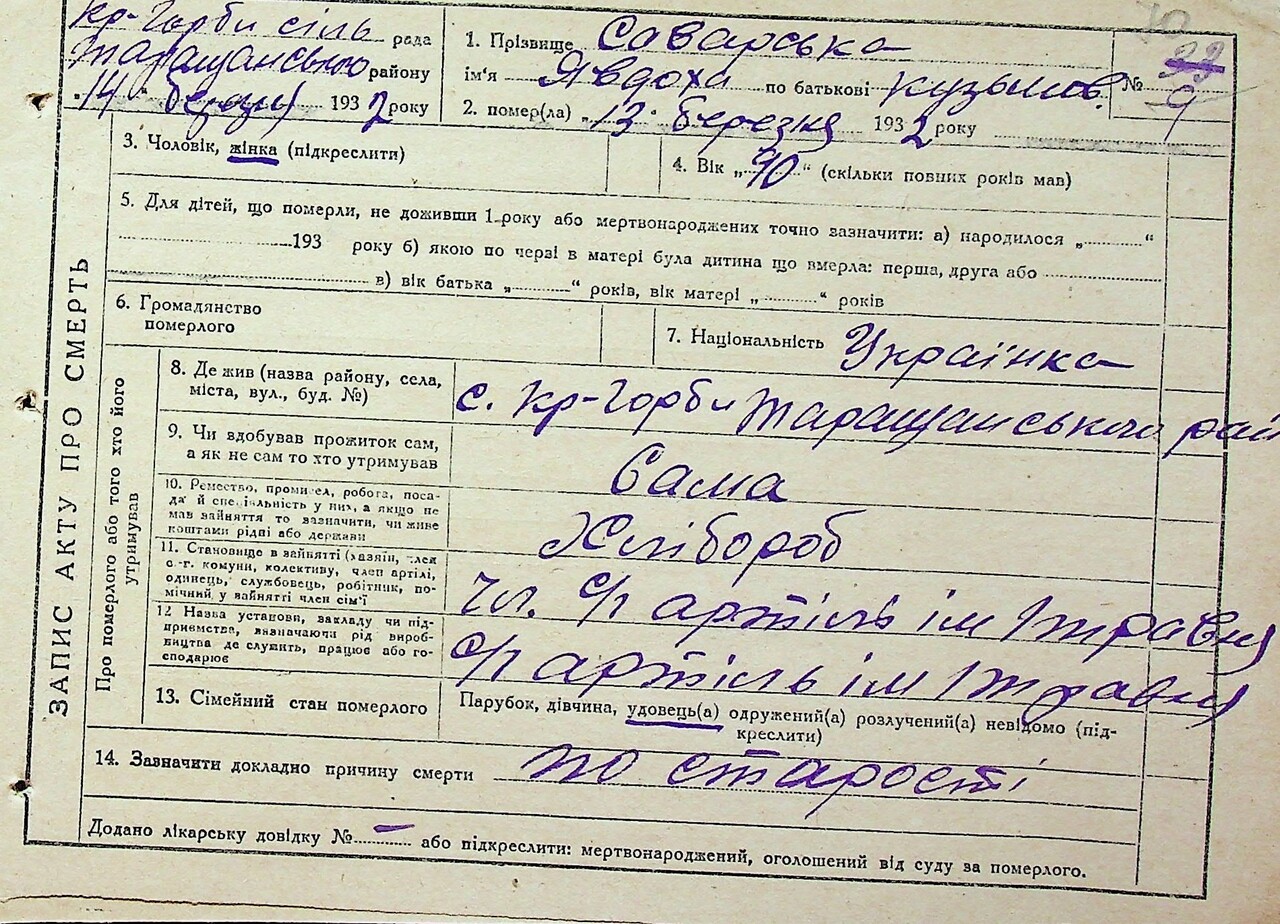 Кр-Горби сіль рада
Таращанського району
„14“ березня 1932 року
1. Прізвище Саварська
ім'я Явдоха по батькові Кузьмов.
2. помер(ла) „13“ березня 1932 року
№ 33
9
3. Чоловік, жінка (підкреслити)
4. Вік „90“ (скільки повних років мав)
5. Для дітей, що померли, не доживши 1 року або мертвонароджених точно зазначити: а) народилося „..........“
193 року б) якою по черзі в матері була дитина що вмерла: перша, друга або
в) вік батька „..........“ років, вік матері „..........“ років
6. Громадянство
померлого
7. Національність Українка
ЗАПИС АКТУ ПРО СМЕРТЬ
Про померлого або того хто його
утримував
8. Де жив (назва району, села,
міста, вул., буд. №)
с. Кр-Горби Таращанського рай
9. Чи вдобував прожиток сам,
а як не сам то хто утримував
Сама
10. Ремество, промисел, робота, поса-
да й спеціяльність у них, а якщо не
мав зайняття то зазначити, чи живе
коштами рідні або держави
Хлібороб
11. Становище в зайнятті (хазяїн, член
с.-г. комуни, колективу, член артілі,
одинець, службовець, робітник, по-
мічний у зайнятті член сім'ї
Чл. с/г артіль ім 1 травня
12 Назва установи, закладу чи під-
приємства, визначаючи рід вироб-
ництва де служить, працює або го-
сподарює
с/г артіль ім 1 травня
13. Сімейний стан померлого
Парубок, дівчина, удовець(а) одружений(а) розлучений(а) невідомо (під-
креслити)
14. Зазначити докладно причину смерти по старості
Додано лікарську довідку № – або підкреслити: мертвонароджений, оголошений від суду за померлого.